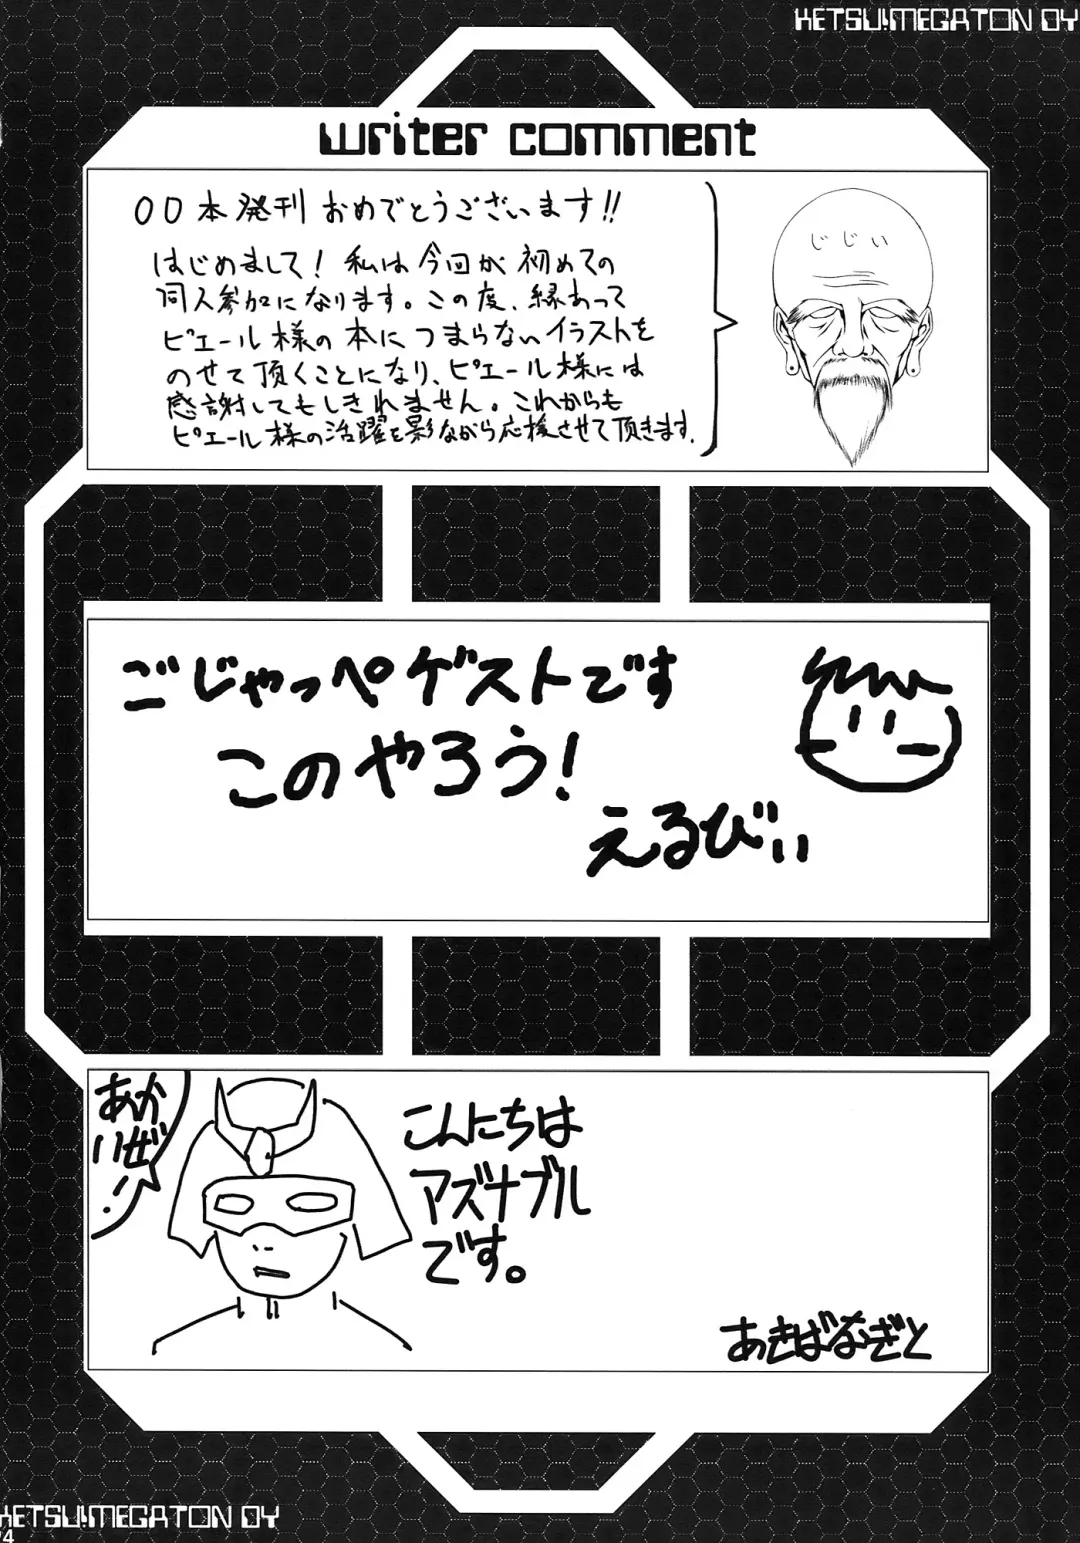 KETSU!MEGATON OY
writer comment
OO本発刊おめでとうございます!!
はじめまして！私は今回が初めての
同人参加になります。この度、縁あって
ピエール様の本につまらないイラストを
のせて頂くことになり、ピエール様には
感謝してもしきれません。これからも
ピエール様の活躍を影ながら応援させて頂きます.
じじい
ごじゃっぺゲストです
このやろう！
えるびぃ
あか
いぜ!
こんにちは
アズナブル
です。
あきばなぎと
KETSU!MEGATON OY